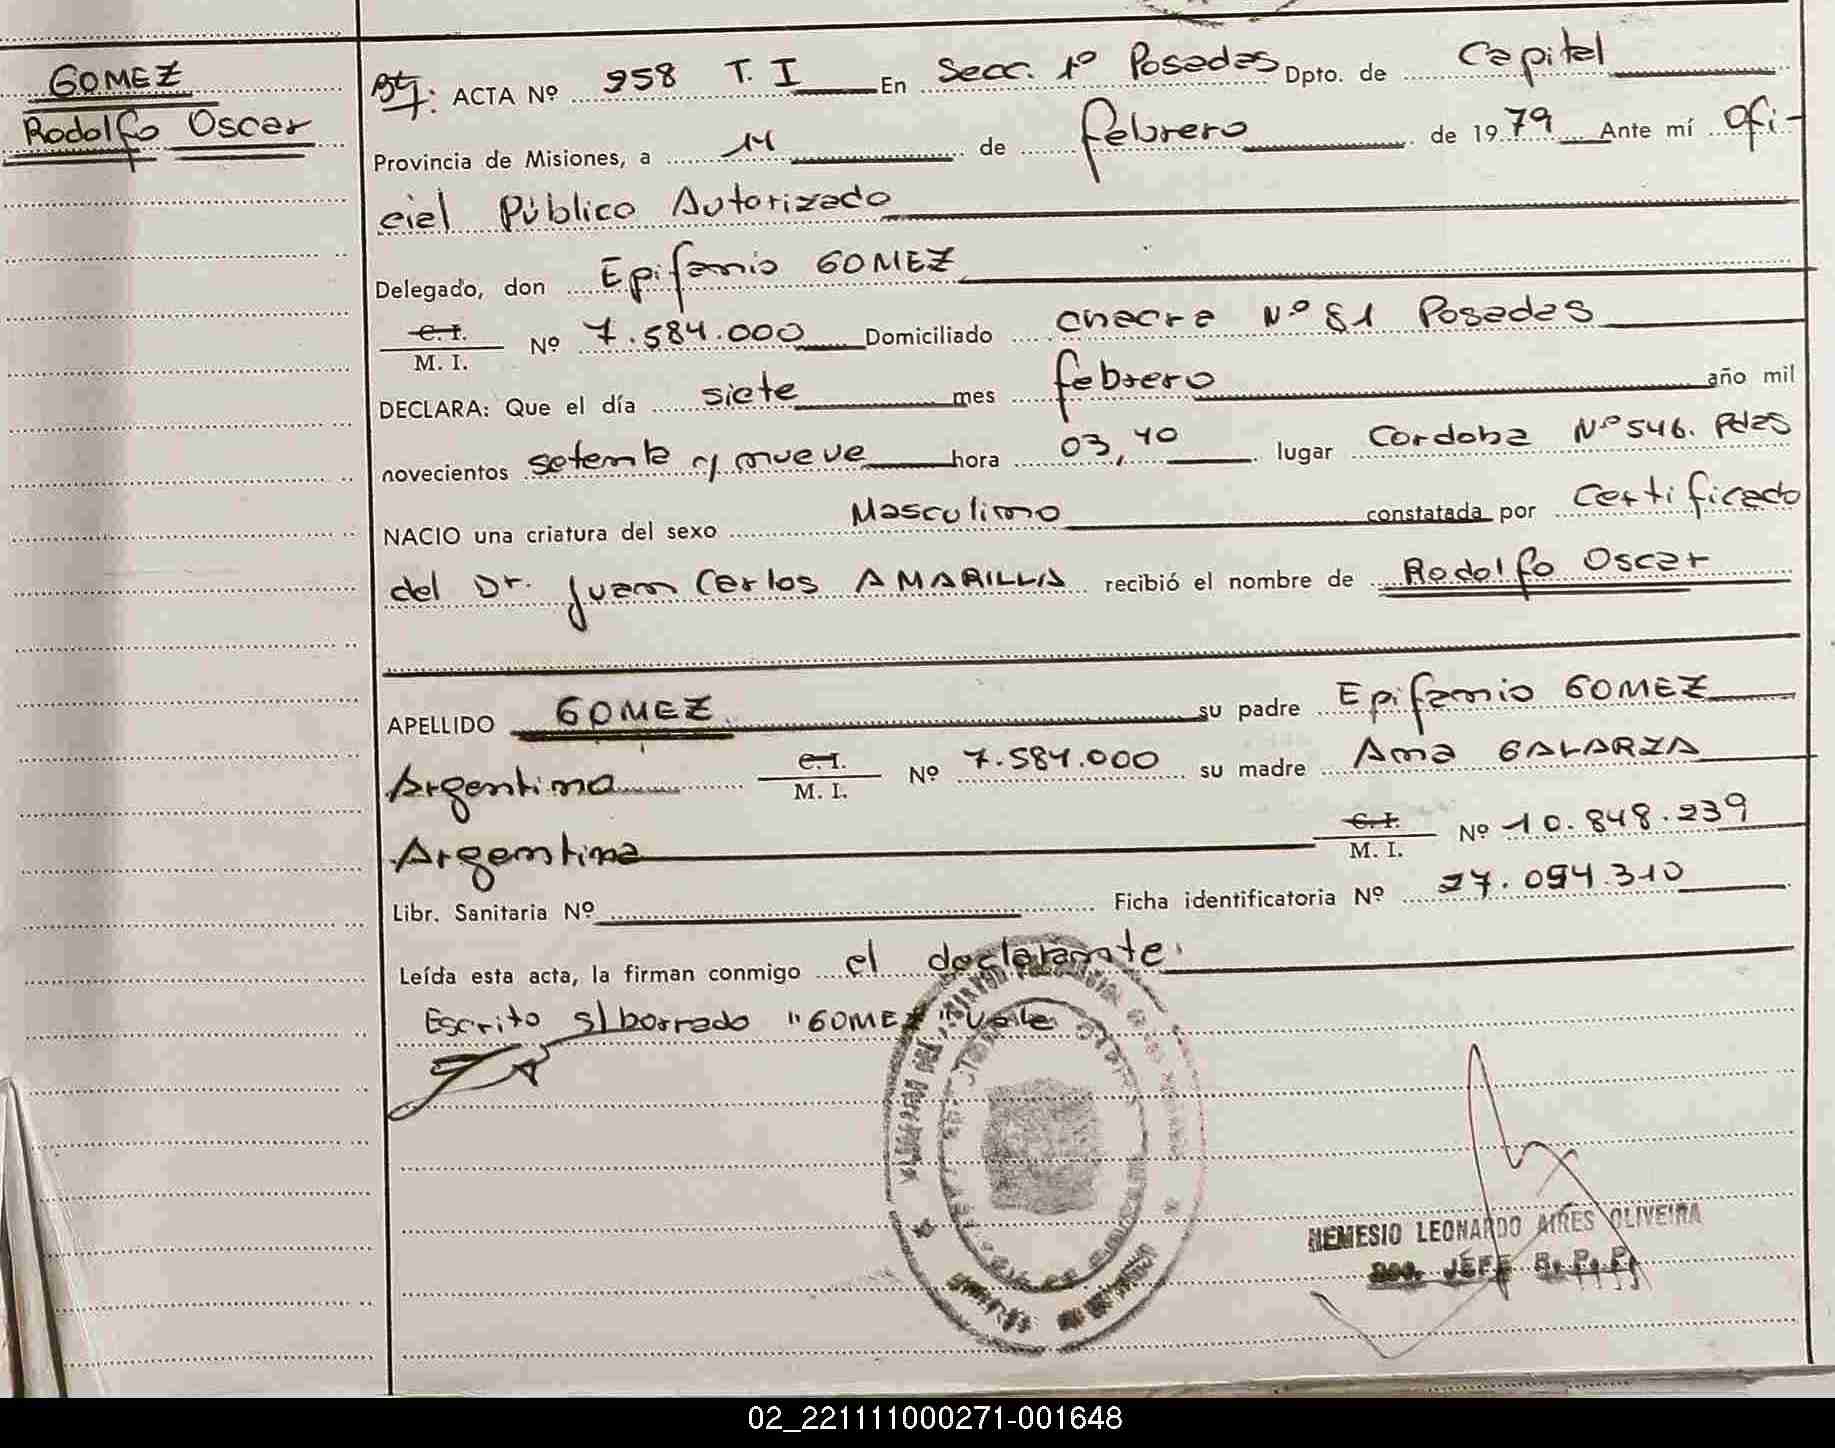 GOMEZ
Rodolfo Oscar
ACTA Nº 958 T. I En Secc. 1º Posadas Dpto. de Capital
Provincia de Misiones, a 14 de febrero de 1979 Ante mí Ofi-
cial Público Autorizado
Delegado, don Epifanio GOMEZ
C. I.
M. I. Nº 7.584.000 Domiciliado chacra Nº 81 Posadas
DECLARA: Que el día siete mes febrero año mil
novecientos setenta y nueve hora 03,40 lugar Cordoba Nº 546. Pdas
NACIO una criatura del sexo Masculino constatada por Certificado
del Dr. Juan Carlos AMARILLA recibió el nombre de Rodolfo Oscar
APELLIDO GOMEZ su padre Epifanio GOMEZ
Argentino C. I. M. I. Nº 7.584.000 su madre Ana GALARZA
Argentina C. I. M. I. Nº 10.848.239
Libr. Sanitaria Nº Ficha identificatoria Nº 27.094.310
Leída esta acta, la firman conmigo el declarante.
Escrito s/borrado "GOMEZ" vale
NEMESIO LEONARDO AIRES OLIVEIRA
JEFE
02_221111000271-001648